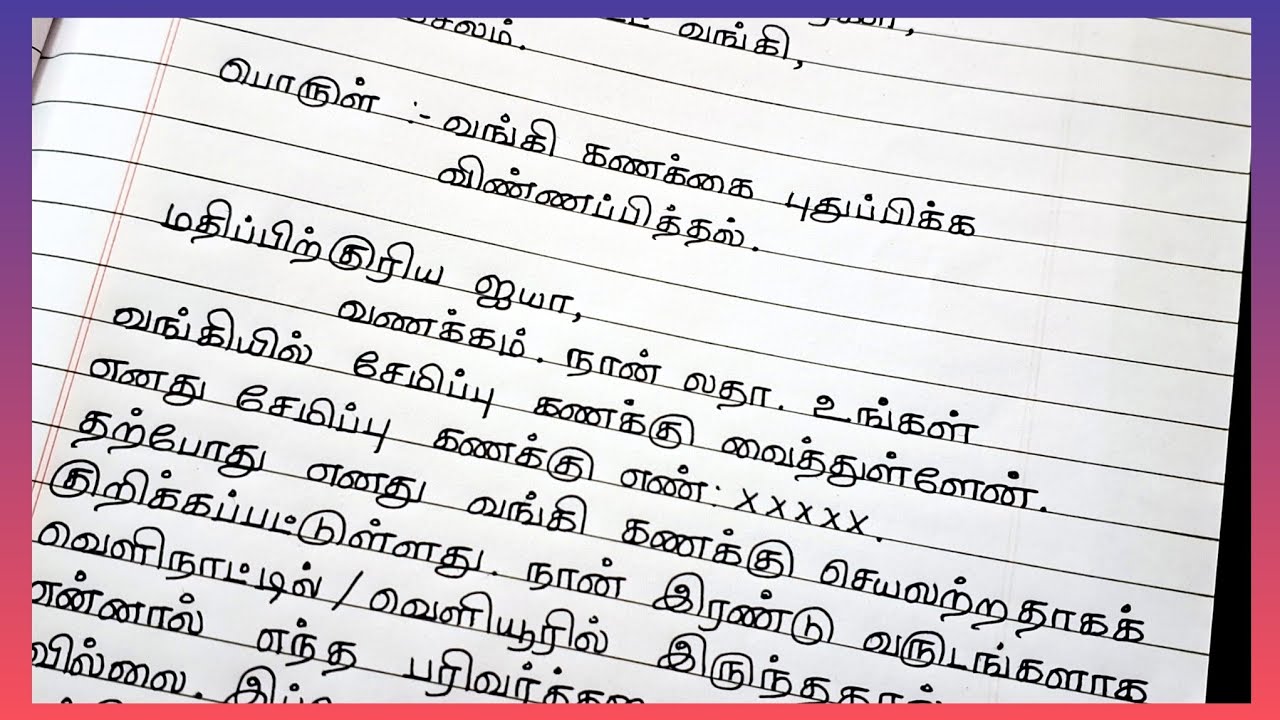 வங்கி,
சேலம்.
பொருள் :- வங்கி கணக்கை புதுப்பிக்க
விண்ணப்பித்தல்.
மதிப்பிற்குரிய ஐயா,
வணக்கம். நான் லதா. உங்கள்
வங்கியில் சேமிப்பு கணக்கு வைத்துள்ளேன்.
எனது சேமிப்பு கணக்கு எண்: XXXXX.
தற்போது எனது வங்கி கணக்கு செயலற்றதாகக்
குறிக்கப்பட்டுள்ளது. நான் இரண்டு வருடங்களாக
வெளிநாட்டில் / வெளியூரில் இருந்ததால்
என்னால் எந்த
வில்லை.